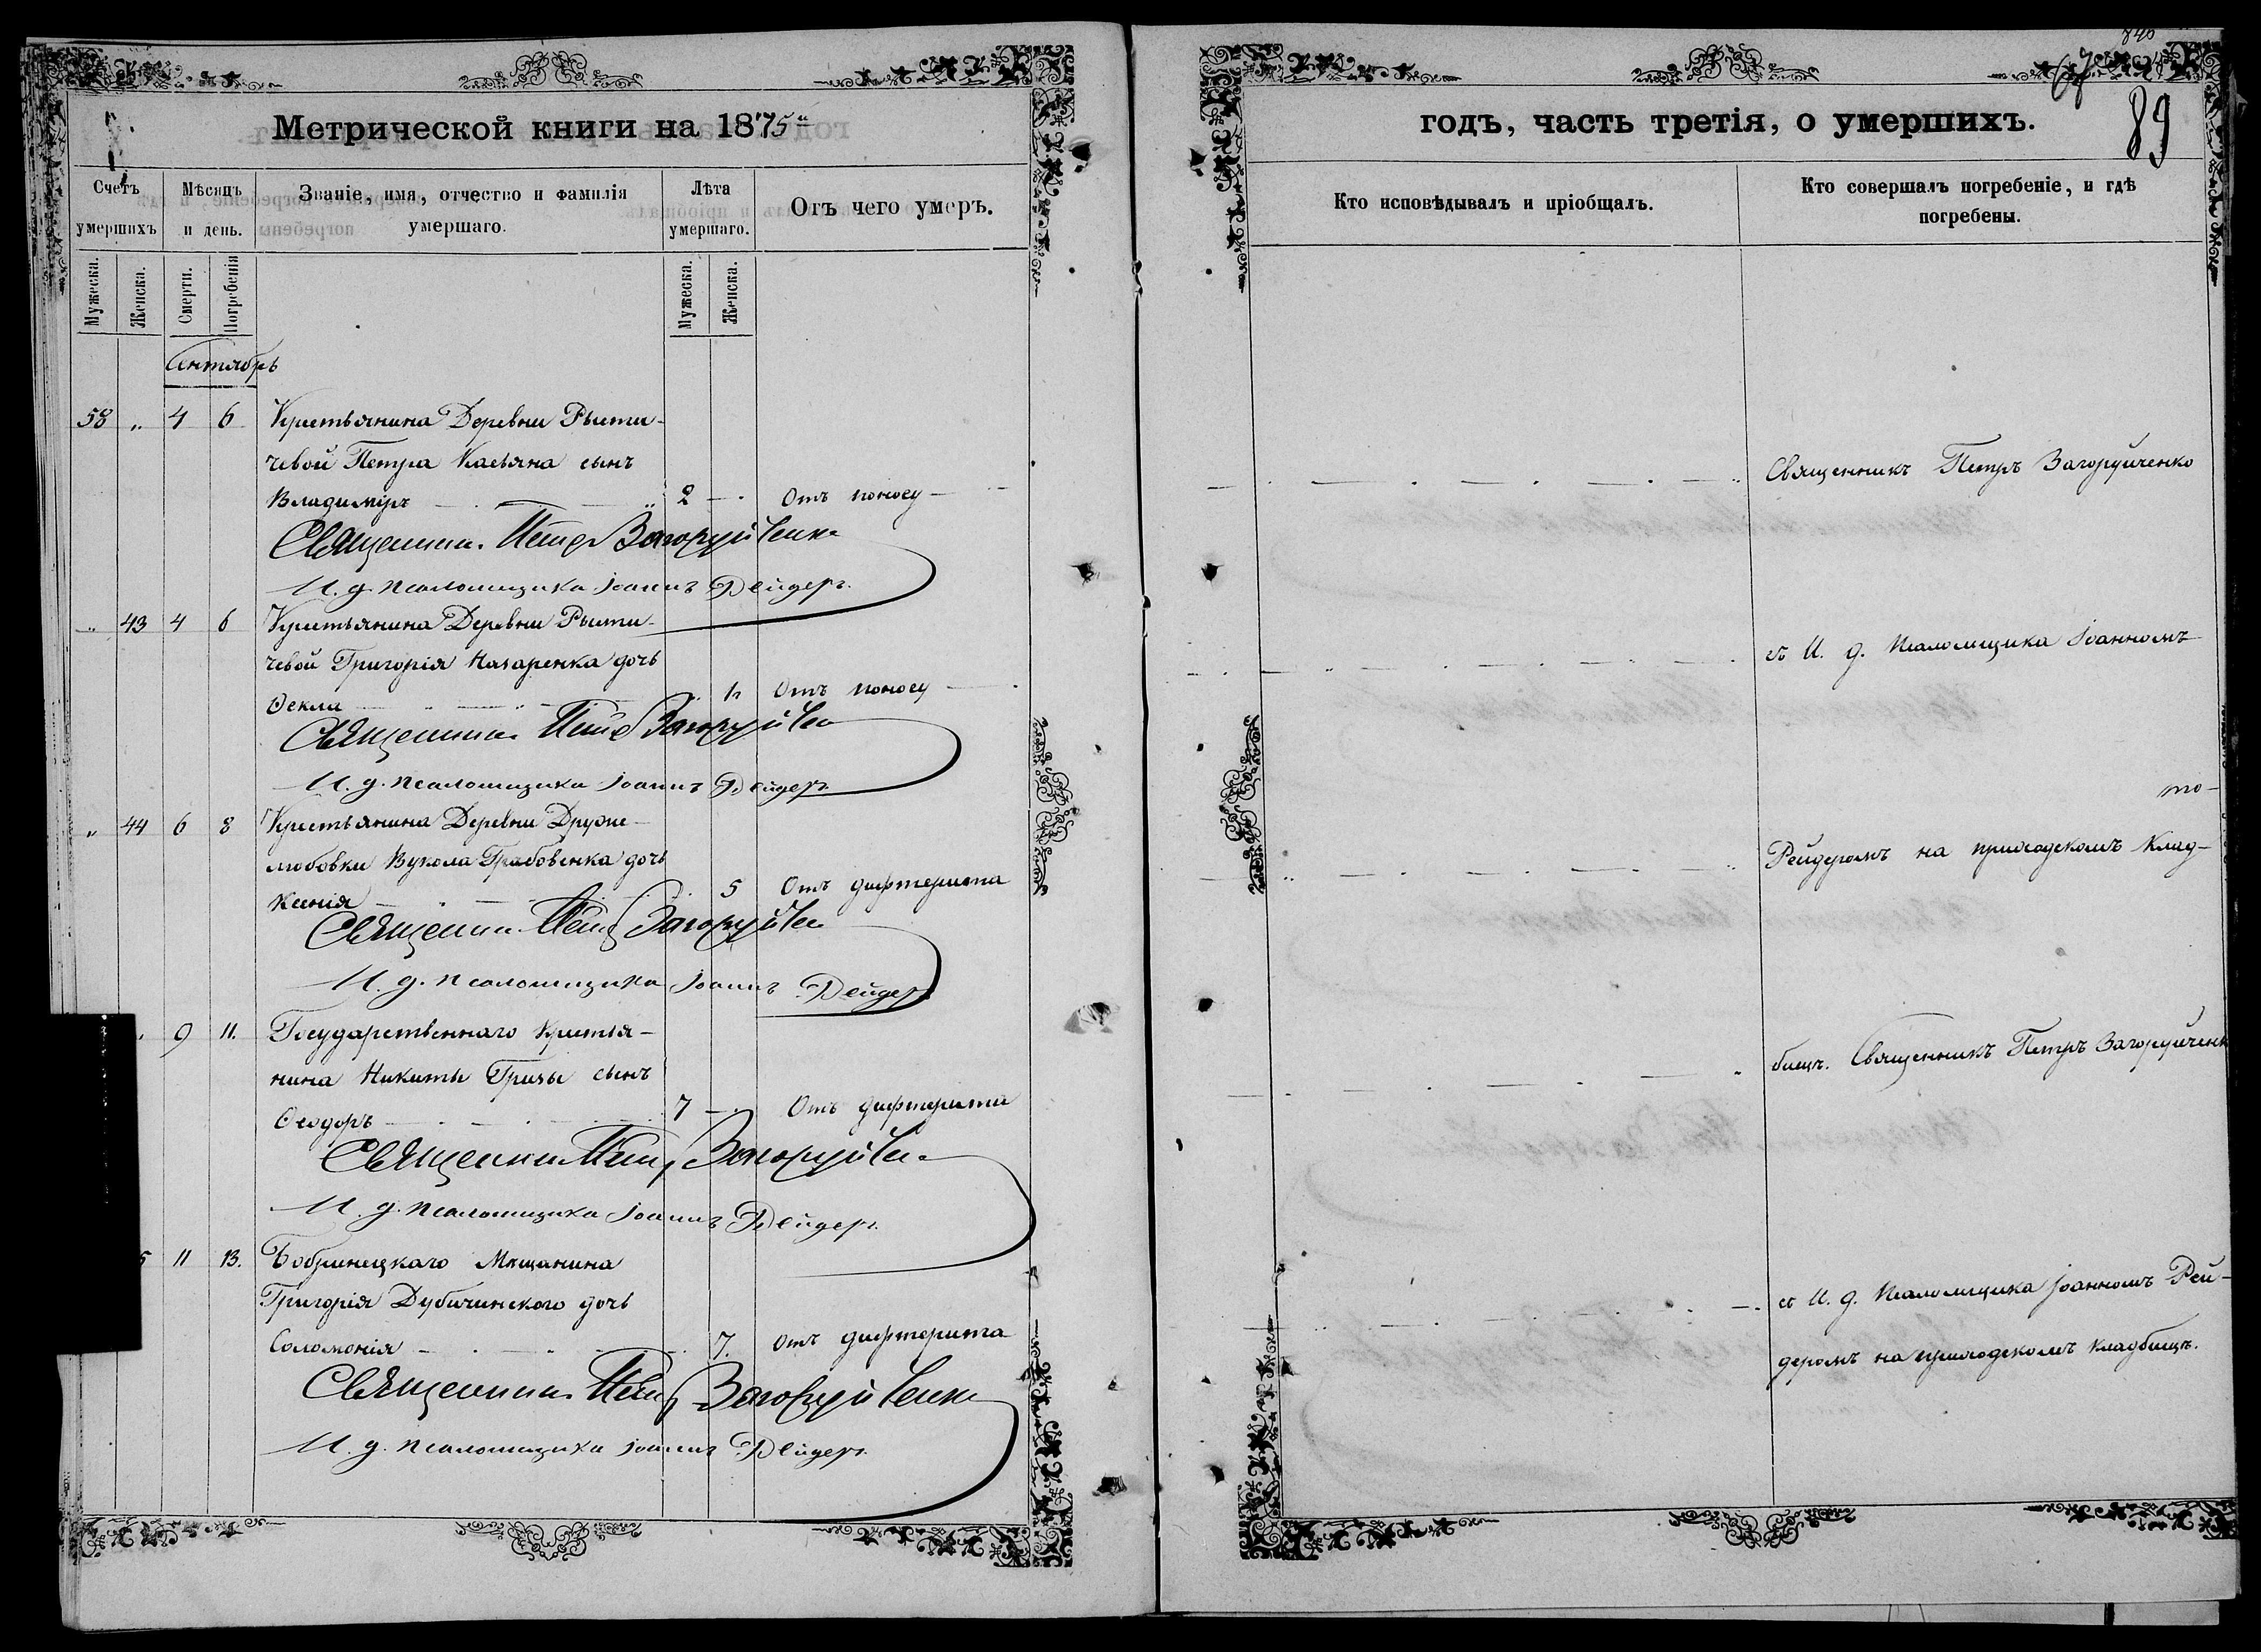 Метрической книги на 1875й
Счетъ умершихъ
Мѣсяцъ и день.
Званіе, имя, отчество и фамилія умершаго.
Лѣта умершаго.
Отъ чего умеръ.
Мужеска.
Женска.
Смерти.
Погребенія
Мужеска.
Женска.
Сентябрь
58 „ 4 6 Крестьянина Деревни
Петра Касьяна сынъ
Владиміръ 2 Отъ поносу
Священникъ Петръ Загоруйченко
И. д. псаломщика Іоаннъ Рейдеръ.
„ 43 4 6 Крестьянина Деревни
Григорія Назаренка дочь
Ѳекла Отъ поносу
Священникъ Петръ Загоруйченко
И. д. псаломщика Іоаннъ Рейдеръ
„ 44 6 8 Крестьянина Деревни Друже-
любовки Вукола Грабовенка дочь
Ксенія 5 Отъ дифтерита
Священникъ Петръ Загоруйченко
И. д. псаломщика Іоаннъ Рейдеръ
9 11. Государственнаго Крестья-
нина Никиты Гризы сынъ
Ѳеодоръ 7 Отъ дифтерита
Священникъ Петръ Загоруйченко
И. д. псаломщика Іоаннъ Рейдеръ.
5 11 13. Бобринецкаго Мѣщанина
Григорія Дубичинского дочь
Соломонія 7. Отъ дифтерита
Священникъ Петръ Загоруйченко
И. д. псаломщика Іоаннъ Рейдеръ.
840
67
89
годъ, часть третія, о умершихъ.
Кто исповѣдывалъ и пріобщалъ.
Кто совершалъ погребеніе, и гдѣ погребены.
Священникъ Петръ Загоруйченко
съ И. д. Псаломщика Іоанномъ
то-
Рейдеромъ на приходскомъ клад-
бищѣ. Священникъ Петръ Загоруйченк
съ И. д. Псаломщика Іоанномъ Рей-
деромъ на приходскомъ кладбищѣ.